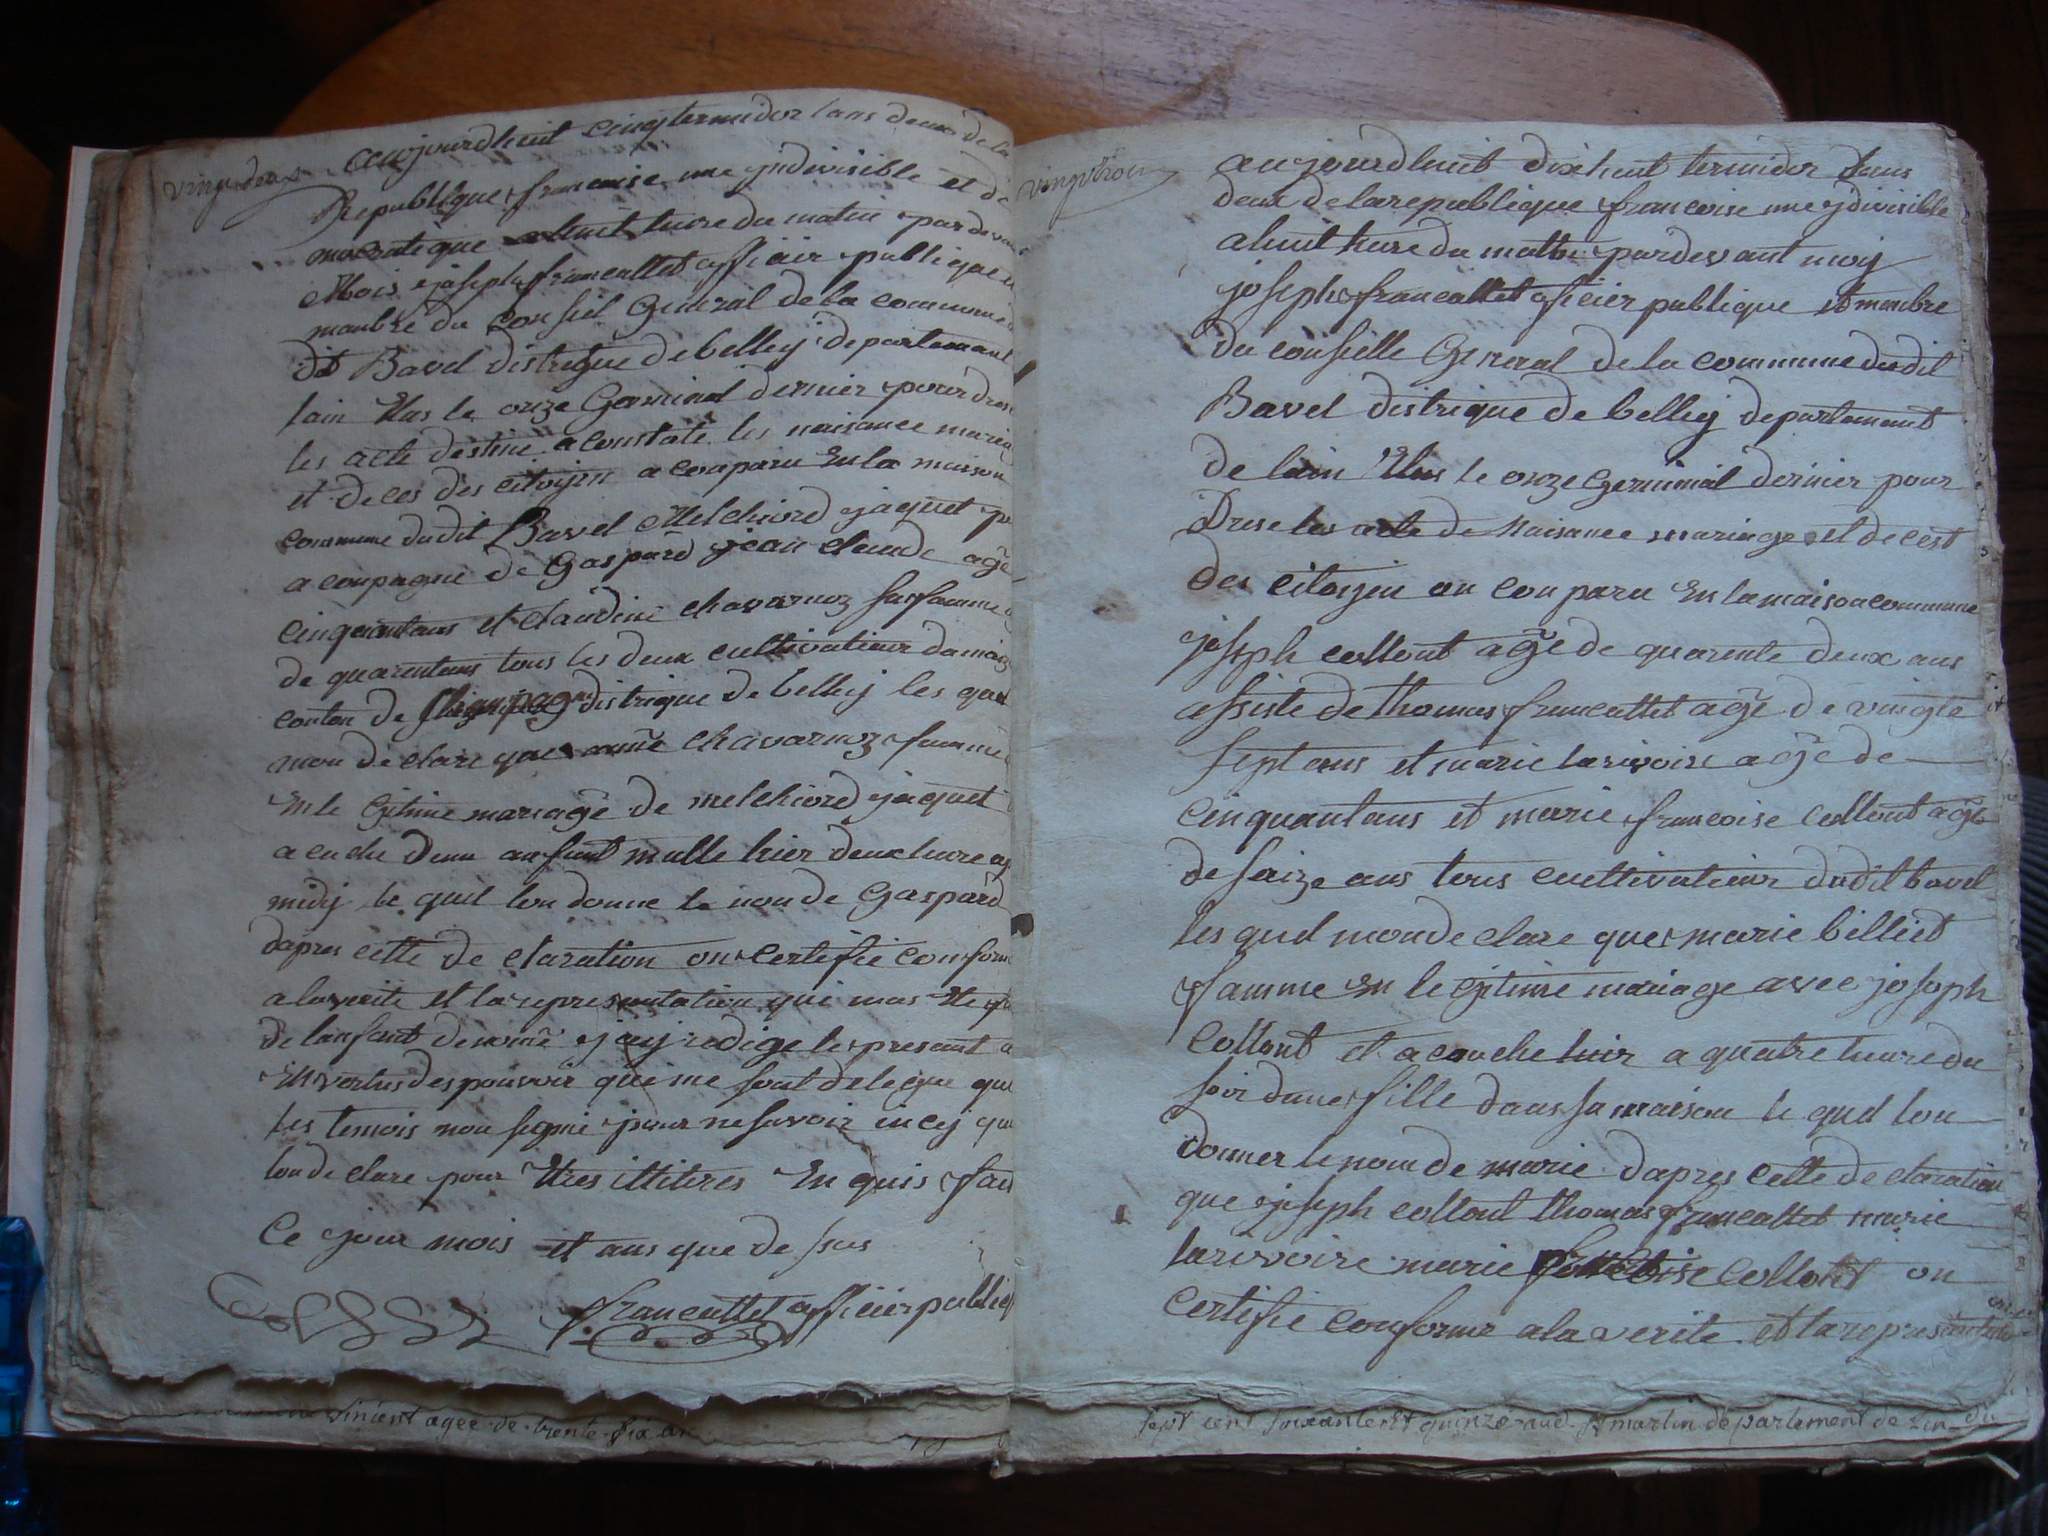 vingt deux
aujourdhuit cinq termidor lans deux de la
Republique francoise une yndivisible et de
mocratique a huit heure du matin par devant
Mois joseph francallet officier publique et
manbre du Consiel General de la commune
dit Bavel distrique de belley departemant
lain Elus le onze Germinal dernier pour drese
les acte destine a constate les naisance mariag
et deces des citoyen a conparu En la maison
commune du dit Bavel Melchiord jaquet
a conpagnie de Gaspard jean claude age
cinquantans et claudine chavarnoz sa famme
de quarentans tous les deux cultivatieur
conton de Champagne distrique de belley les quel
mon declare que anne chavarnoz famme
En le gitime mariage de melchiord jaquet
a cuche dun anfant malle hier deux heure
midy le quel lon donne le non de Gaspard
dapres cette de claration on certifie conforme
a la verite et la representation qui mas Ete
de lanfant denomé j'ay redige le presant
En vertus des pouvoir qui me sont delegue que
les temois non signié pour ne savoir incy que
lon de clare pour Etres illiteres En quis fait
Ce jour mois et ans que de sus
francallet officier public
vingt trois
aujourdhuit dix huit termidor lans
deux de la republique francoise une ydivisible
a huit heure du matin par devant moy
joseph francallet oficier publique et manbre
du conseille General de la commune du dit
Bavel distrique de belley departemant
de lain Elus le onze germinal dernier pour
Drese les acte de Naisance mariage et de cest
des citoyin on conparu En la maison commune
joseph collont age de quarente deux ans
assiste de thomas francallet age de vingte
sept ans et marie larivoire age de
cinquantans et marie francoise collont age
de saize ans tous cultivatieur du dit bavel
les quel mon de clare que marie billiet
famme En le gitime mariage avec joseph
Collont et a couche hier a quatre heure du
soir dune fille dans sa maison le quel lon
donner le nom de marie dapres cette de claration
que joseph collont thomas francallet marie
larivoire marie francoise collont on
certifie conforme a la verite et la representation
Vincent agee de trente six an
sept cent soixante et quinze aud. St martin departement de Lin du